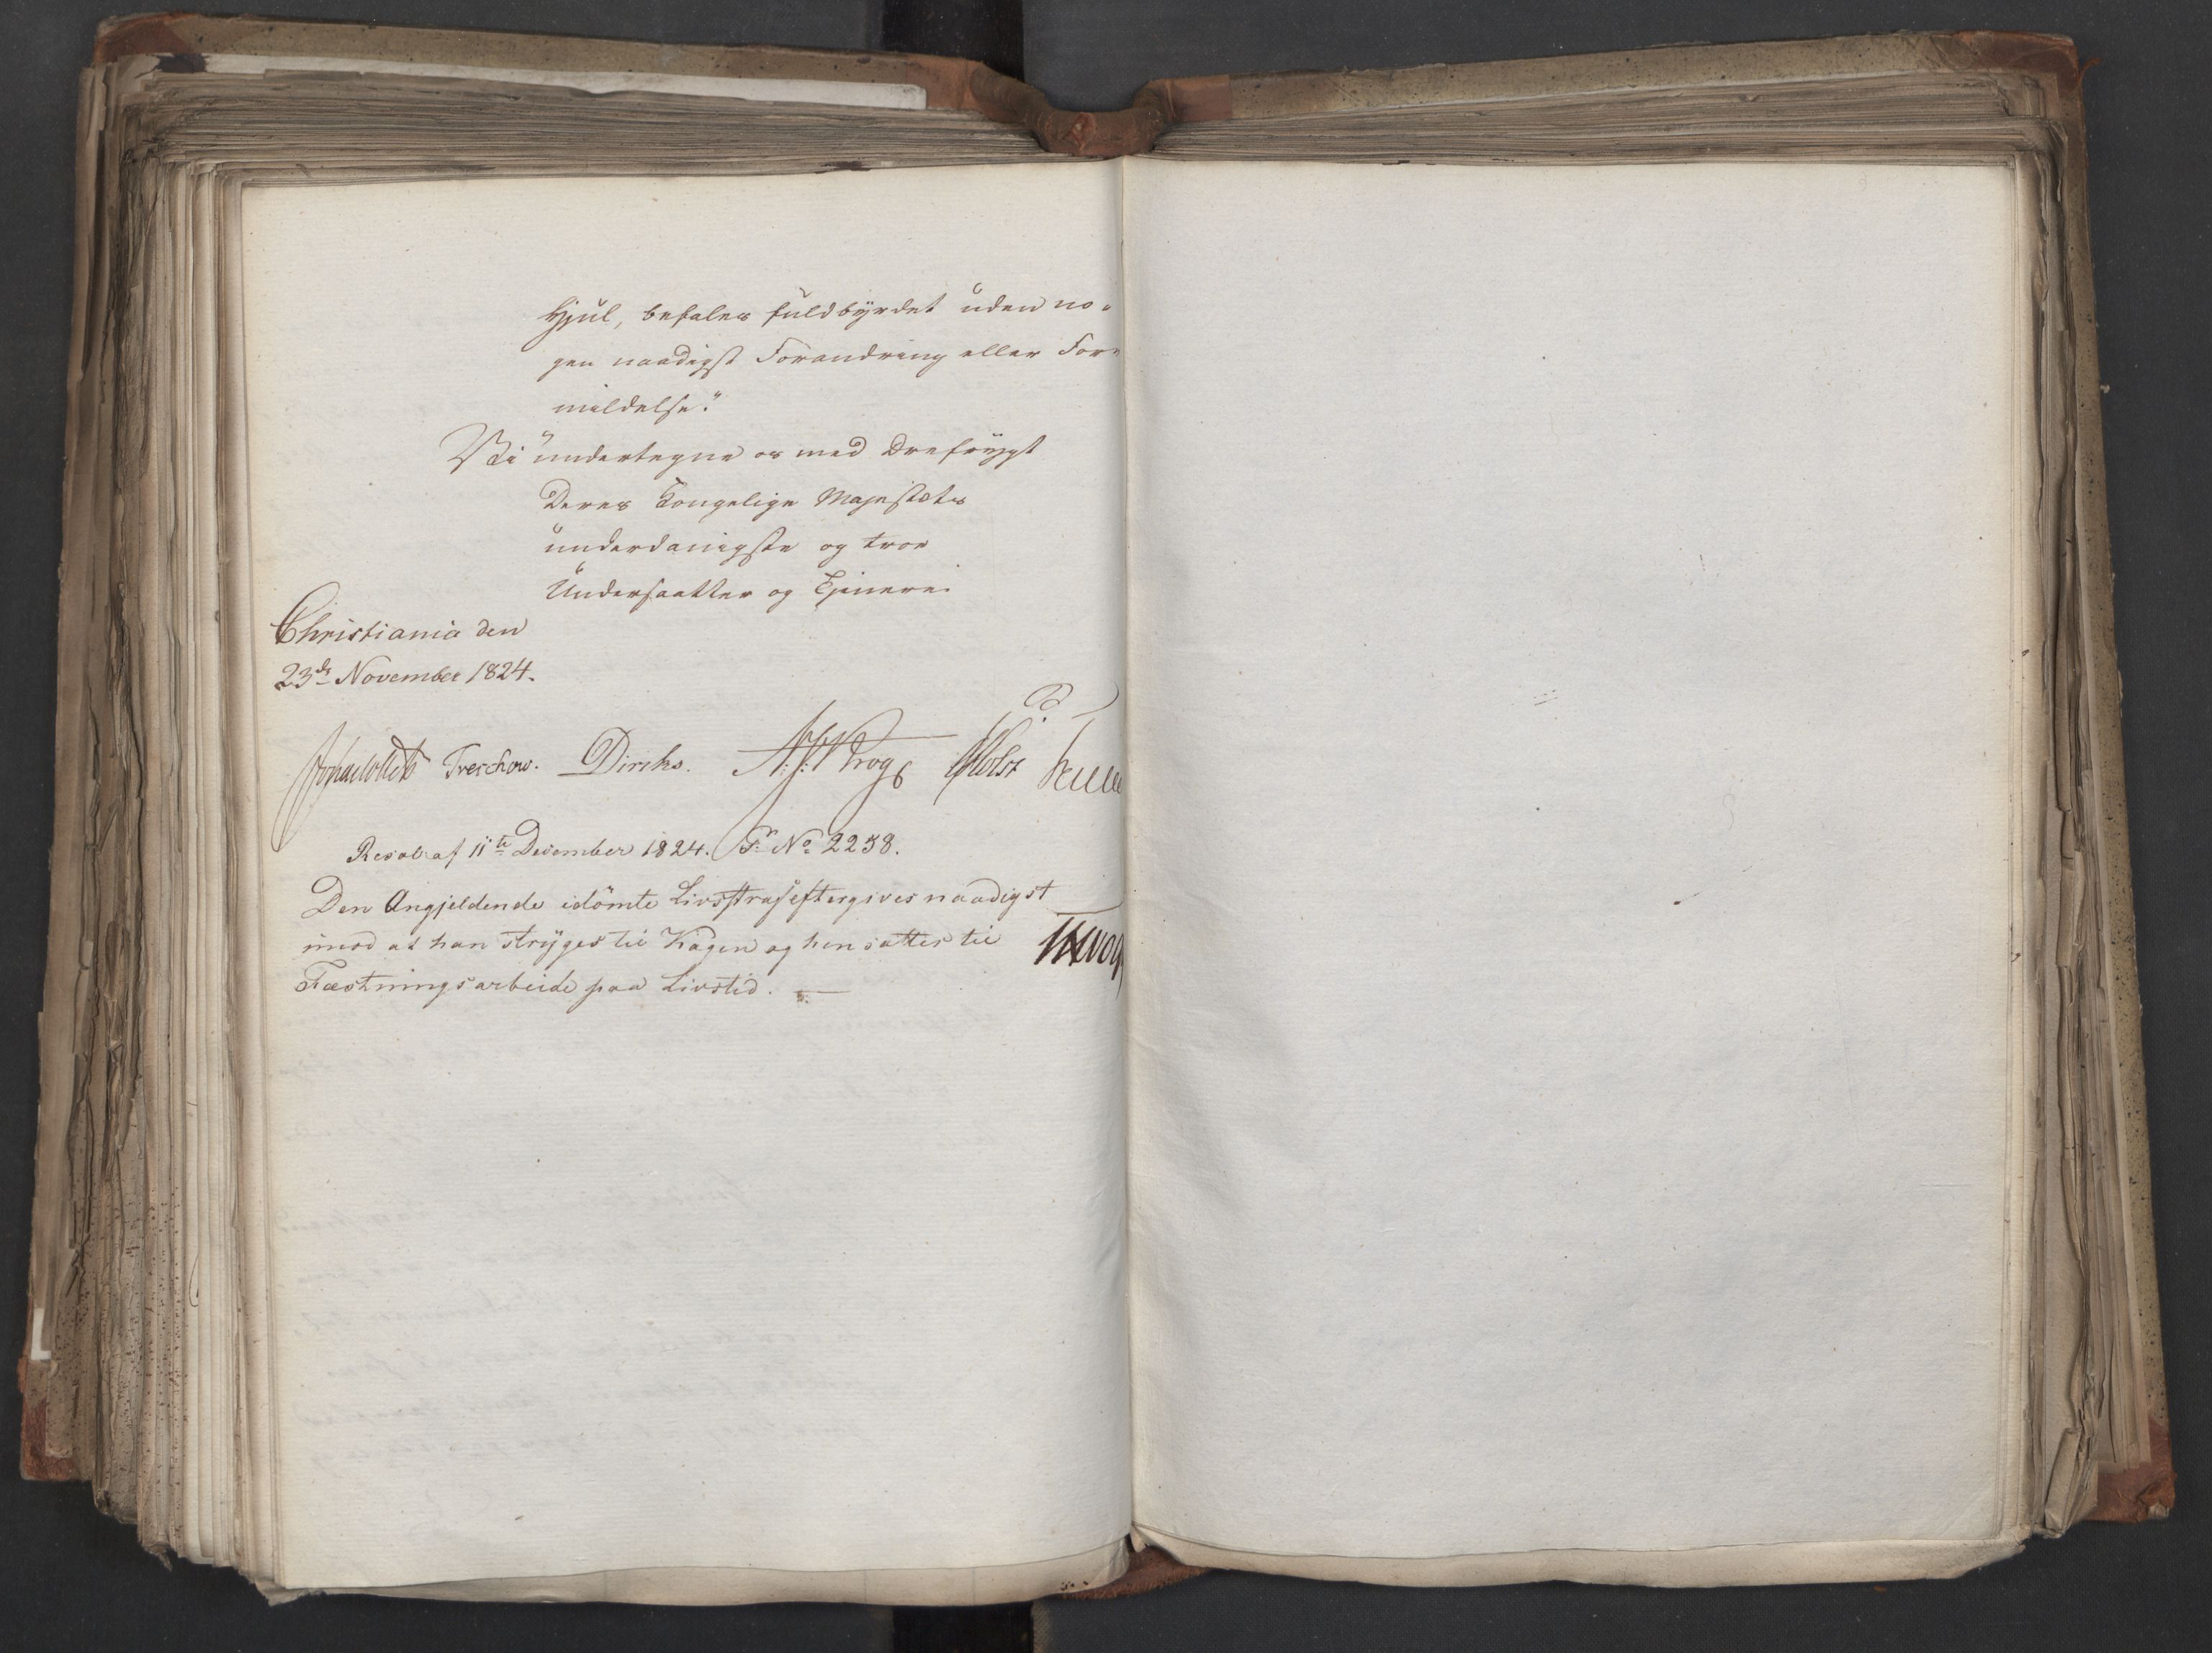 Hjul, befales fuldbyrdet uden no-
gen naadigst Forandring eller For-
mildelse."
Vi undertegne os med Drefrygt
Deres Kongelige Majestæts
underdanigste og troe
Undersaatter og Tjenere.
Christiania den
23de November 1824.
Jonas Collett Treschow. Diriks. Krog Holst
Resol: af 11te December 1824. P: No 2258.
Den Angjeldende idömte Livsstraf eftergives naadigst
imod at han stryges til Kagen og hensættes til
Fæstningsarbeide paa Livstid. —